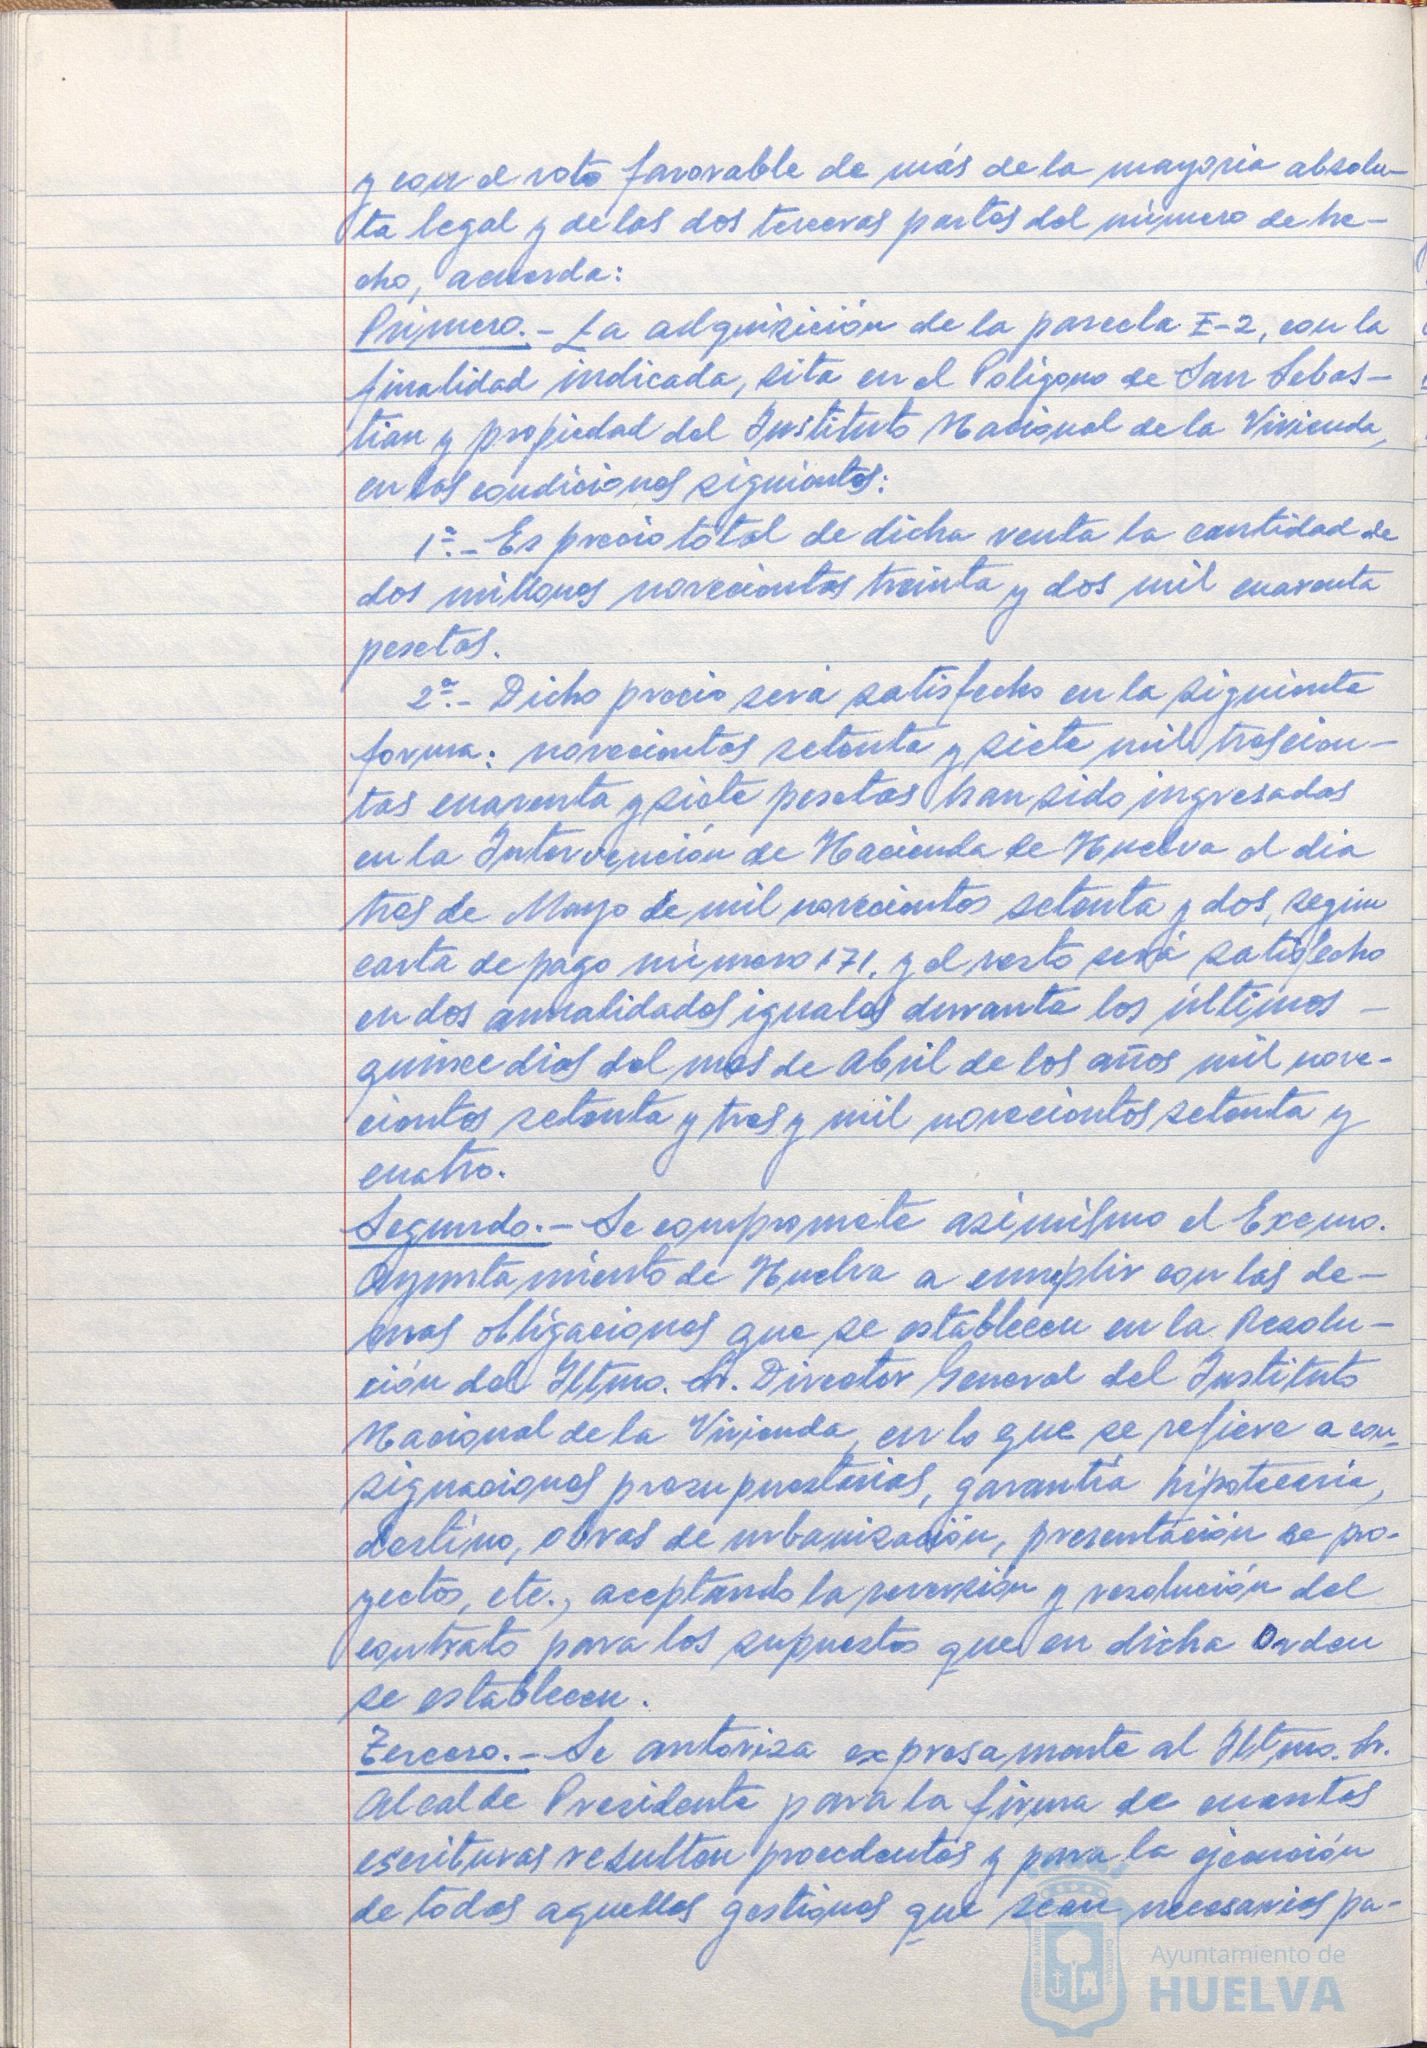 y con el voto favorable de más de la mayoria absolu-
ta legal y de las dos terceras partes del número de he-
cho, acuerda:
Primero.- La adquisición de la parcela I-2, con la
finalidad indicada, sita en el Poligono de San Sebas-
tian y propiedad del Instituto Nacional de la Vivienda,
en las condiciones siguientes:
1ª.- Es precio total de dicha venta la cantidad de
dos millones novecientas treinta y dos mil cuarenta
pesetas.
2ª.- Dicho precio será satisfecho en la siguiente
forma: novecientas setenta y siete mil trescien-
tas cuarenta y siete pesetas han sido ingresadas
en la Intervención de Hacienda de Huelva el dia
tres de Mayo de mil novecientos setenta y dos, segun
carta de pago número 171, y el resto será satisfecho
en dos anualidades iguales durante los últimos -
quince dias del mes de Abril de los años mil nove-
cientos setenta y tres y mil novecientos setenta y
cuatro.
Segundo.- Se compromete asimismo el Excmo.
Ayuntamiento de Huelva a cumplir con las de-
mas obligaciones que se establecen en la Resolu-
ción del Iltmo. Sr. Director General del Instituto
Nacional de la Vivienda, en lo que se refiere a con-
signaciones presupuestarias, garantía hipotecaria,
destino, obras de urbanización, presentación de pro-
yectos, etc., aceptando la reversión y resolución del
contrato para los supuestos que en dicha Orden
se establecen.
Tercero.- Se autoriza expresamente al Iltmo. Sr.
Alcalde Presidente para la firma de cuantas
escrituras resulten procedentes y para la ejecución
de todas aquellas gestiones que sean necesarias pa-
Ayuntamiento de
HUELVA